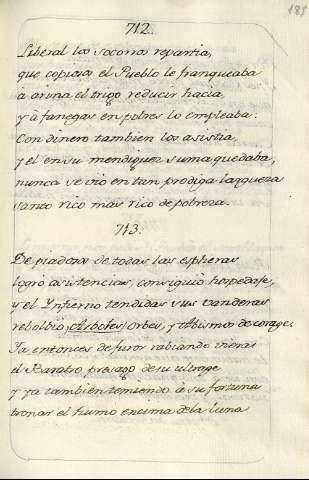 185
712.
Liberal los socorros repartia,
que copiosos el Pueblo le franqueaba
à arina el trigo reducir hacia
y à fanegas en pobres lo empleaba.
Con dinero tambien los asistia
y el en su mendiguez suma quedaba,
nunca se vio en tan prodiga largueza
Santo rico mas rico de pobreza.
713.
De piadosos de todas las espheras
logró asistencias, consiguió hospedaje,
y el Ynfierno tendidas sus vanderas
rebolbio, Orbes, y Abismos de corage:
Ya entonces de furor rabiando vieras
el Baratro presago de su ultrage
y ya tambien temiendo à su fortuna
tronar el humo encima dela Luna